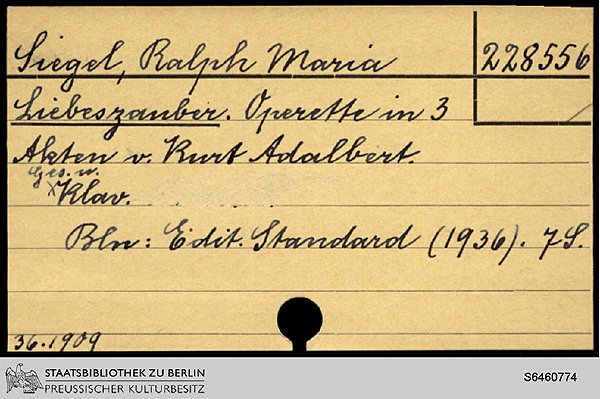 Siegel, Ralph Maria
228556
Liebeszauber. Operette in 3
Akten v. Kurt Adalbert.
Ges. u.
Klav.
Bln: Edit. Standard (1936). 7 S.
36.1909
STAATSBIBLIOTHEK ZU BERLIN
PREUSSISCHER KULTURBESITZ
S6460774